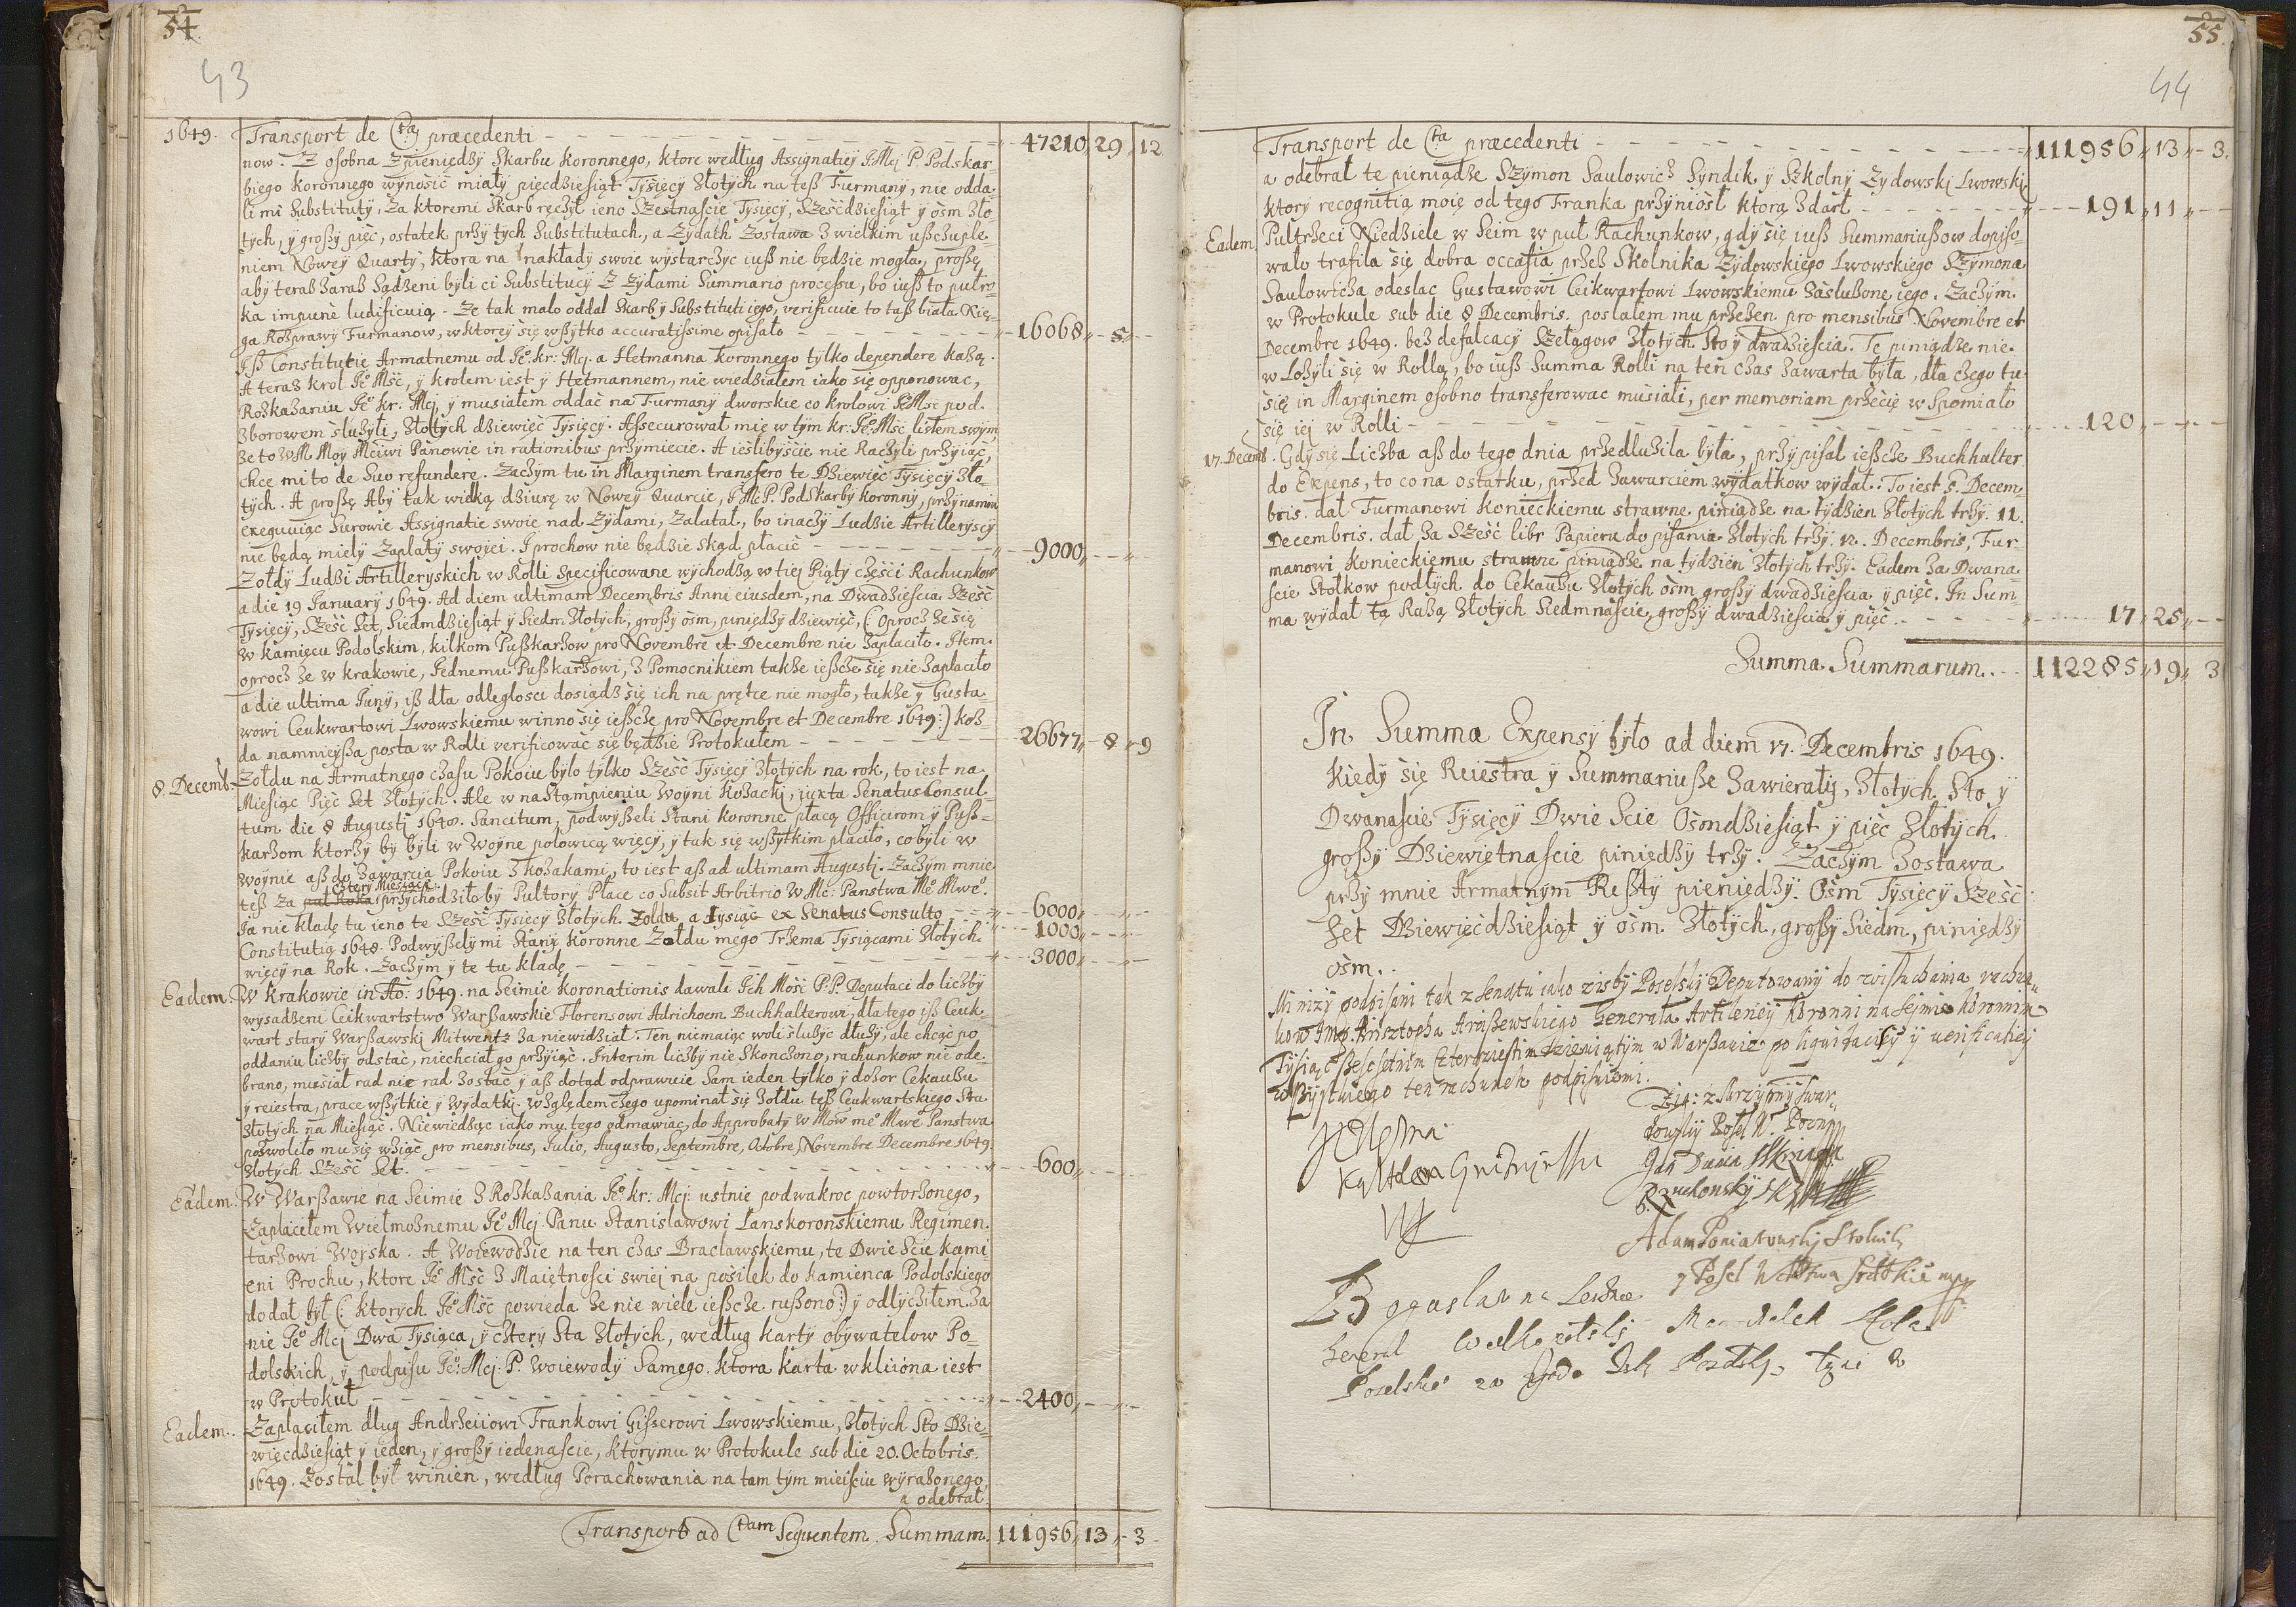 54
43
1649. Transport de Cta præcedenti 47210 29 12
now. Z osobna Zpieniędzÿ Skarbu Koronnego, ktore według Assignatieÿ JMci P. Podskar-
biego Koronnego wÿnosić miałÿ pięcdziesiąt Tÿsięcÿ Złotÿch na teß Furmanÿ, nie odda-
li mi Substitutÿ, Za ktoremi Skarb ręczÿł ieno Szesnascie Tÿsięcÿ, Sześćdziesiąt ÿ ośm Zło-
tÿch, ÿ großÿ pięć, ostatek przÿ tÿch Substitutach, a Zÿdach Zostawa z wielkim ußczuple-
niem Noweÿ Quartÿ, ktora na nakładÿ swoie wÿstarczÿc iuß nie będzie mogła, proßę
abÿ teraz zaraz Sądzeni bÿli ci Substituci Z Zÿdami Summario processu, bo iuß to pułro-
ka impune ludificuią. Ze tak malo oddal Skarbÿ Substituti iego, verificuie to taß biała Xię-
ga Rozprawÿ Furmanow, w ktoreÿ się wßÿtko accuratissime opisało 16068 5
Iß Constitutie Armatnemu od Jeo: kr: Mcj. a Hetmanna koronnego tÿlko dependere każą.
A teraz krol Jeo Mść, ÿ krolem iest ÿ Hetmannem, nie wiedziałem iako się opponowac,
Rozkazaniu Jeo kr: Mcj, ÿ musiałem oddać na Furmanÿ dworskie co krolowi JeoMść pod
Zborowem służÿli, Złotÿch dziewięć Tÿsięcÿ. Assecurował mię w tÿm kr: Jeo: Mść listem swÿm,
że to WM Moÿ Mciwi Panowie in rationibus przÿmiecie. A ieślibÿście nie Raczÿli przÿiąć,
chce mi to de Suo refundere. Zaczÿm tu in Marginem transfero te Dziewięc Tÿsięcÿ Zło-
tÿch. A proßę Abÿ tak wielką dziurę w Noweÿ Quarcie, JMcP. Podskarbÿ koronnÿ, przÿnamni
exequuiąc Surowie Assignatie swoie nad Zÿdami, Załatał, bo inaczÿ Ludzie Artillerÿscÿ
nie będą mielÿ Zapłatÿ swojei. I prochow nie będzie skąd płacić 9000
Zołdÿ Ludzi Artillerÿskich w Rolli specificowane wÿchodzą w tiej Piątÿ części Rachunkow
a die 19 Januarÿ 1649. Ad diem ultimam Decembris Anni eiusdem, na Dwadzieścia Sześć
Tÿsięcÿ, Sześć Set, Siedmdziesiąt ÿ Siedm Złotÿch, großÿ ośm, piniędzÿ dziewięć, (: Oprocz że się
w Kamięcu Podolskim, kilkom Pußkarzow pro Novembre et Decembre nie zapłaciło. Item.
oprocz że w Krakowie, Jednemu Pußkarzowi, z Pomocnikiem także ießcze się nie zapłaciło
a die ultima Junÿ, iß dla odległosci dosiądz się ich na prętce nie mogło, także ÿ Gusta-
wowi Ceukwartowi Lwowskiemu winno się ießcze pro Novembre et Decembre 1649:) Każ-
da namnieÿßa posta w Rolli verificowac się będzie Protokułem 26677 8 9
8. Decemb. Zołdu na Armatnego czasu Pokoiu bÿlo tÿlko Sześć Tÿsięcÿ Złotÿch na rok, to iest na
Miesiąc Pięc Set Złotÿch. Ale w nastąmpieniu Woÿni Kozackj, iuxta Senatus Consul-
tum die 8 Augusti 1648. Sancitum, podwÿßeli Stani koronne płacą Officirom ÿ Puß-
karzom ktorzÿ bÿ bÿli w Woÿne połowicą więcÿ, ÿ tak się wßÿtkim płaciło, co bÿli w
woÿnie aß do Zawarcia Pokoiu z Kozakami, to iest aß ad ultimam Augusti. Zaczÿm mnie
czterÿ Miesiące
teß Za puł Roku przÿchodziło bÿ Pułtorÿ Płace co Subsit Arbitrio WMc: Panstwa Meo Mweo.
Ja nie kładę tu ieno te Sześć Tÿsięcÿ Złotÿch Zołdu, a Tysiąc ex Senatus Consulto 6000
1000
Constitutią 1648. Podwÿßelÿ mi Stanÿ koronne Zołdu mego Trzema Tÿsiącami Złotÿch
więcÿ na Rok. Zaczÿm ÿ te tu kładę 3000
Eadem. W Krakowie in Ao: 1649. na Seimie Koronationis dawali Ich Mość P.P. Deputaci do liczbÿ
wÿsadzeni Ceikwartstwo Warßawskie Florensowi Adrichoem Buchhalterowi, dla tego iß Ceuk-
wart starÿ Warßawskj Mitwentz za niewidział. Ten niemaiąc woli służÿc dłużÿ, ale chcąc po
oddaniu liczbÿ odstać, niechciał go przÿiąć. Interim liczbÿ nie Skonczono, rachunkow nie ode-
brano, musiał rad nie rad zostać ÿ aß dotąd odprawuie Sam ieden tÿlko ÿ dozor Cekaußu
ÿ reiestra, prace wßÿtkie ÿ wÿdatkj. Względem czego upominał się zołdu teß Ceukwartskiego Stu
Złotÿch na Miesiąc. Niewiedząc iako mu tego odmawiac, do Approbatÿ WMow meo Mweo Panstwa
pozwoliło mu się wziąc pro mensibus, Julio, Augusto, Septembre, Octobre, Novembre Decembre 1649.
Złotÿch Sześć Set. 600
Eadem. W Warßawie na Seimie z Rozkazania Jeo kr: Mcj: ustnie podwakroc powtorzonego,
Zapłaciłem Wielmoznemu Jeo Mcj Panu Stanislawowi Lanskoronskiemu Regimen-
tarzowi Woÿska. A Woiewodzie na ten czas Bracławskiemu, te Dwie Scie Kami-
eni Prochu, ktore Jeo Mść z Maiętnosci swiej na posiłek do Kamienca Podolskiego
dodał bÿł (: ktorych Jeo Mść powieda że nie wiele ießcze rußono:) ÿ odlyczÿłem za
nie Jeo Mcj Dwa Tÿsiąca, ÿ czterÿ Sta Złotÿch, według kartÿ obÿwatelow Po-
dolskich, ÿ podpisu Jeo: Mcj: P. Woiewodÿ Samego. ktora karta wkliiona iest
w Protokuł 2400
Eadem. Zapłaciłem dług Andrzeiiowi Frankowi Gisserowi Lwowskiemu, Złotÿch Sto Dzie-
więcdziesiąt ÿ ieden, ÿ großÿ iedenascie, ktorÿmu w Protokule sub die 20. Octobris
1649. Zostal bÿł winien, według Porachowania na tam tÿm mieiscu wÿrażonego,
a odebrał
Transport ad Ctam Sequentem. Summam. 111956 13 3
55
44
Transport de Cta præcedenti 111956 13 3.
a odebrał te pieniądze Szÿmon Saulowicz Syndik ÿ Szkolnÿ Zÿdowskj Lwowskj
ktorÿ recognitią moię od tego Franka przÿniosł ktorą zdarł 191 11
Eadem. Pułtrzeci Niedziele w Seim w puł Rachunkow, gdÿ się iuß Summariußow dopiso-
wało trafila się dobra occasia przez Skolnika Zÿdowskiego Lwowskiego Szÿmona
Saulowicza odeslac Gustawowi Ceikwartowi Lwowskiemu zasłużone iego. Zaczÿm
w Protokule sub die 8 Decembris. posłałem mu przezen pro mensibus Novembre et
Decembre 1649. bez defalcacÿ Szelągow Złotÿch Sto ÿ dwadziescia. Te piniądze nie
wLożÿli się w Rollą, bo iuß Summa Rolli na ten czas zawarta bÿła, dla czego tu
się in Marginem osobno transferowac musiałi, per memoriam przecię wspomiało
się iej w Rolli 120
17. Decemb. Gdÿ się Liczba aß do tego dnia przedłużiła bÿła, przÿpisał ießcze Buchhalter
do Expens, to co na ostatku, przed zawarciem wÿdatkow wÿdał. To iest 5. Decem-
bris dał Furmanowi Konieckiemu strawne piniądze na tÿdzien Złotÿch trzÿ. 11.
Decembris. dał za Sześć libr Papieru do pisania Złotÿch trzÿ. 12. Decembris, Fur-
manowi Konieckiemu strawne piniądze na tÿdzien Złotÿch trzÿ. Eadem za Dwana-
scie Stołkow podłÿch do Cekaußu Złotÿch ośm großÿ dwadziescia ÿ pięć. In Sum-
ma wÿdał tą Razą Złotÿch Siedmnascie, großÿ dwadziescia ÿ pięć 17 25
Summa Summarum. 112285 19 3
In Summa Expensÿ bÿło ad diem 17. Decembris 1649.
Kiedÿ się Reiestra ÿ Summariuße Zawierałÿ, Złotÿch Sto ÿ
Dwanascie Tÿsięcÿ Dwie Scie Ośmdziesiąt ÿ pięc Złotÿch.
großÿ Dziewiętnascie piniędzÿ trzÿ. Zaczÿm Zostawa
przÿ mnie Armatnÿm Reßtÿ pieniędzÿ. Ośm Tÿsięcÿ Sześć
Set Dziewięćdziesiąt ÿ ośm Złotÿch, großÿ Siedm, piniędzÿ
ośm.
Mi niżÿ podpisani tak z Senatu iako z isbÿ Poselskÿ Deputowanÿ do wisłuchania rachun-
kow Jmp. Krisztopha Arcißewskiego Generała Artileriey Koronni na Seimie Koronnim
Tÿsiąc Sześcsetnim Czterdziestim Dziewiątÿm w Warßawie po liquidatiey ÿ uerificatiey
wßÿstkiego ten rachunek podpisuiemi.
Zig: z Skrzynny
Poseł W. Pozn
Jan
Adam Poniatowskj Stolnik
ÿ Poseł
Bogusław na Lesznie
General Marszalek Koła
Poselskie